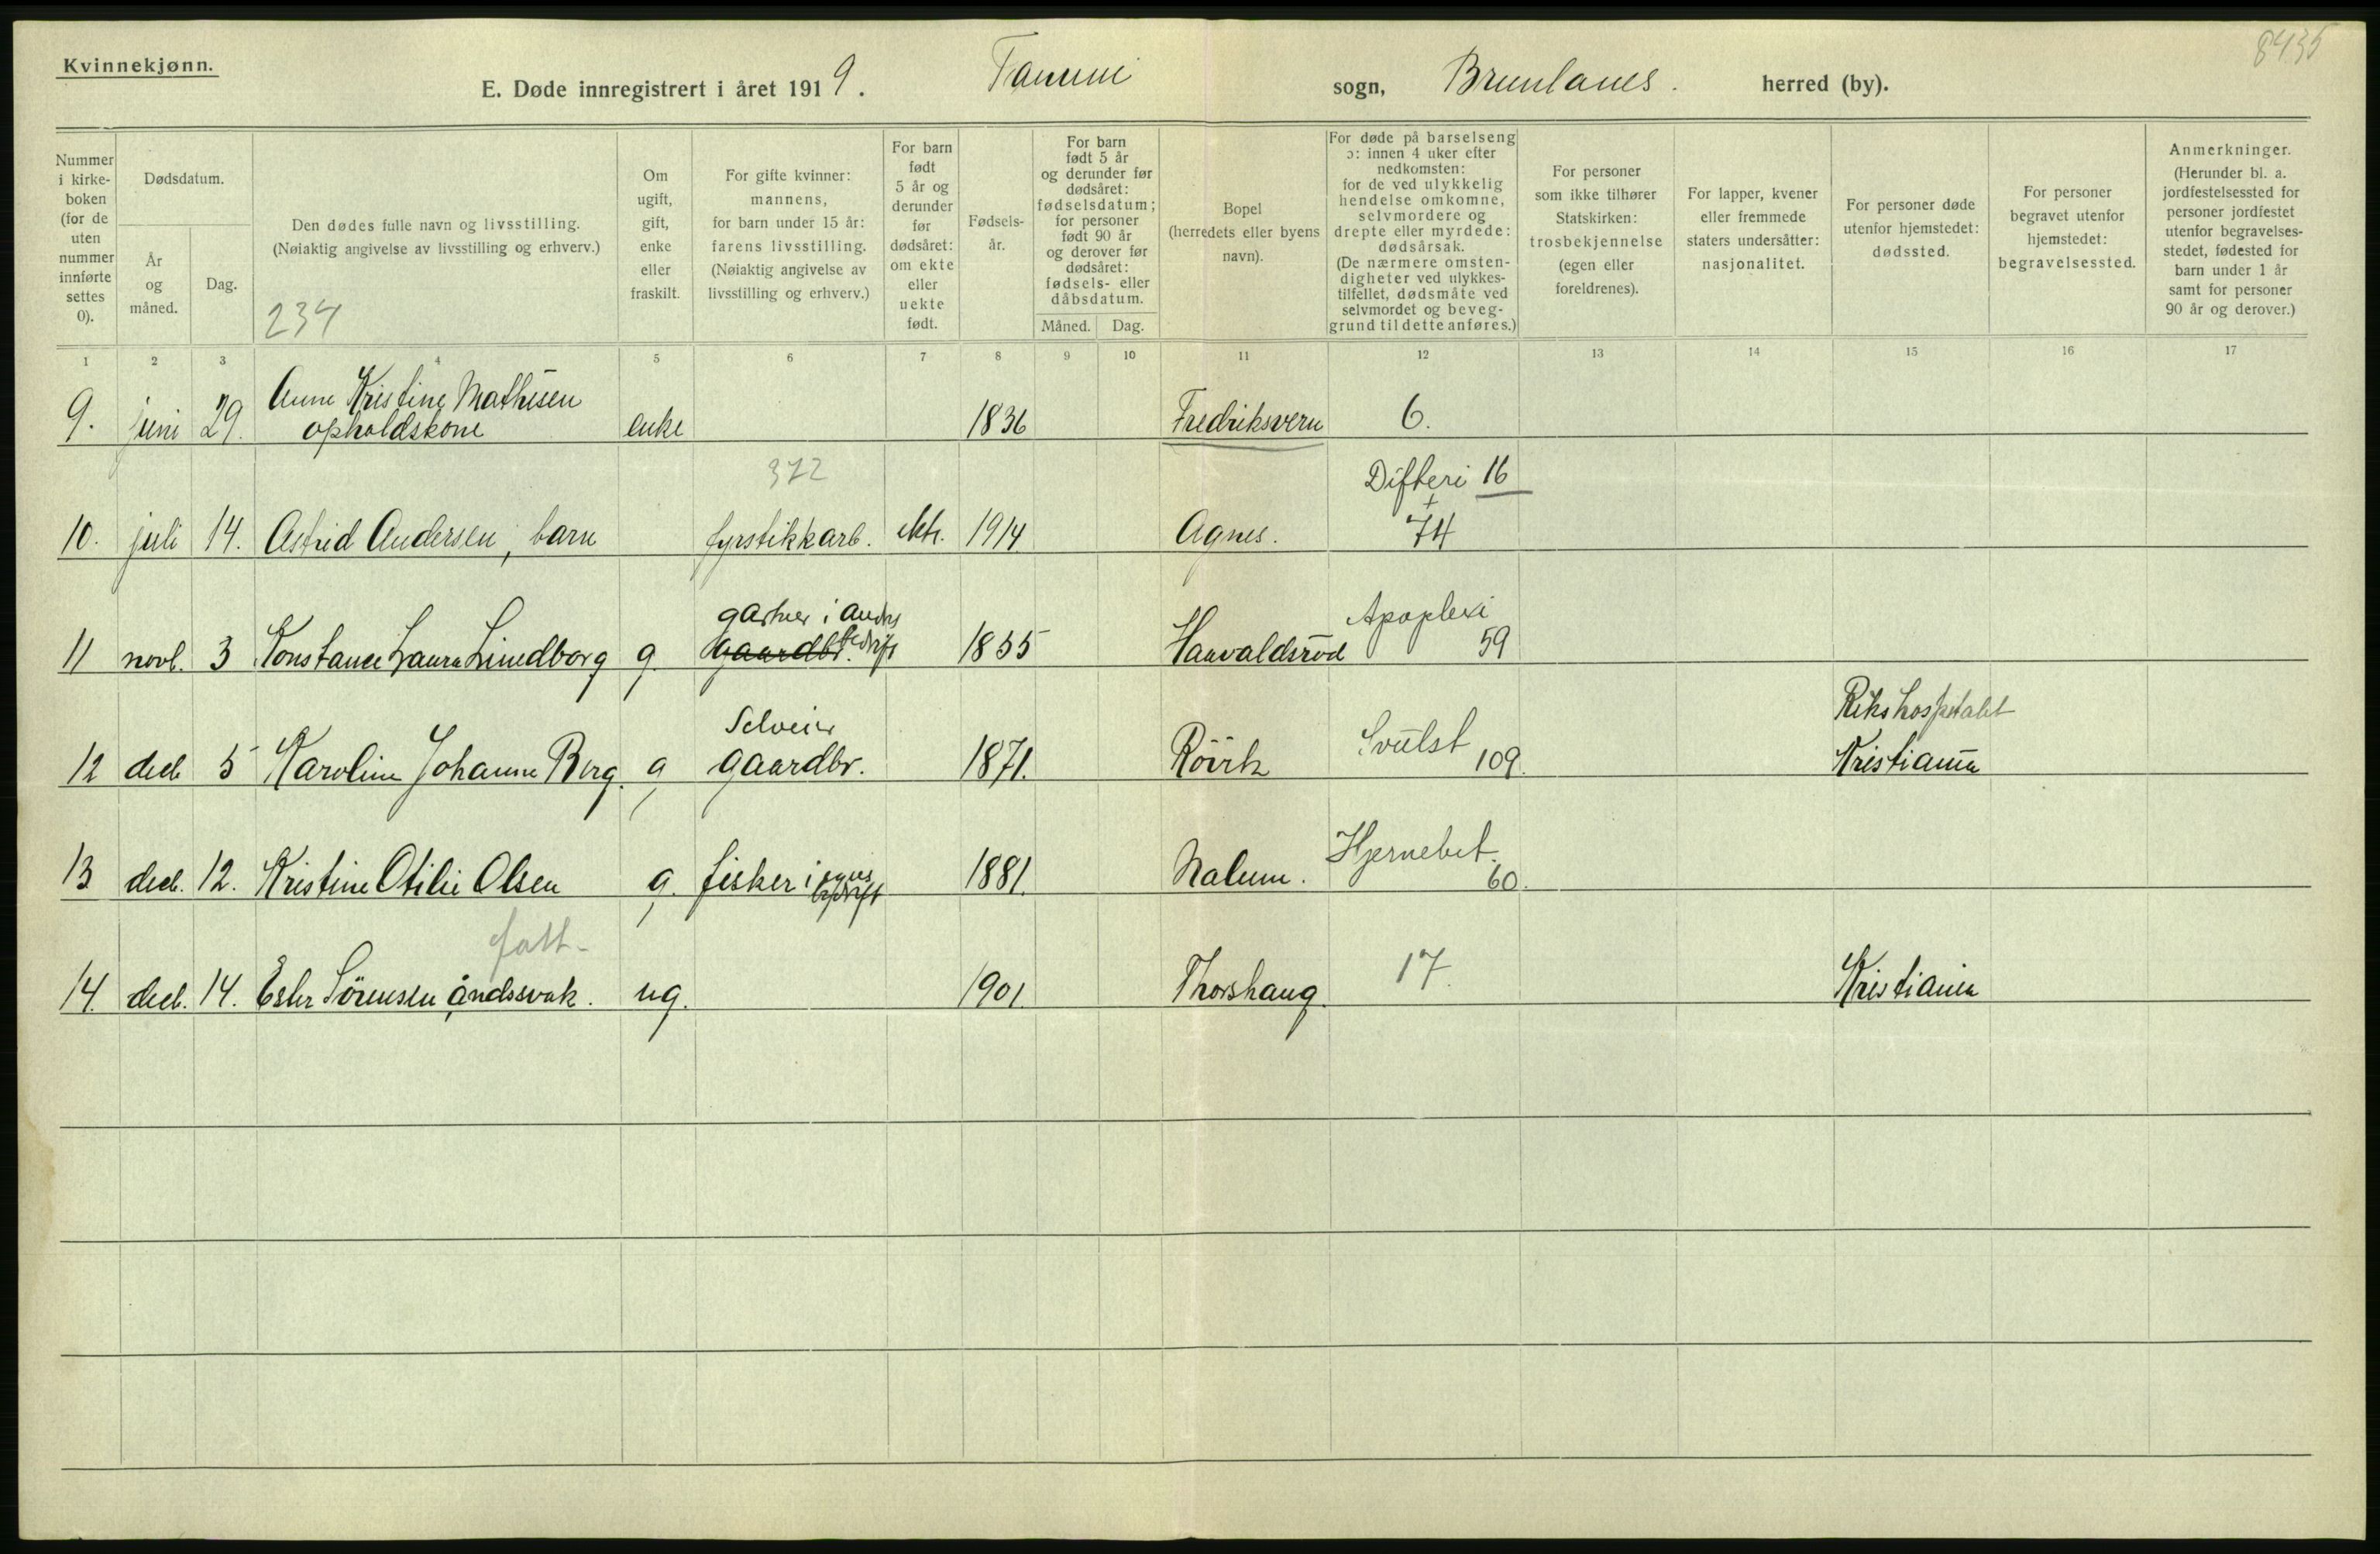 8435
Kvinnekjønn.
E. Døde innregistrert i året 1919. Tanum sogn, Brunlanes. herred (by).
Nummer i kirke-boken (for de uten nummer innførte settes 0).
Dødsdatum.
År og måned.
Dag.
Den dødes fulle navn og livsstilling.
(Nøiaktig angivelse av livsstilling og erhverv.)
234
Om ugift, gift, enke eller fraskilt.
For gifte kvinner: mannens, for barn under 15 år: farens livsstilling.
(Nøiaktig angivelse av livsstilling og erhverv.)
For barn født 5 år og derunder før dødsåret: om ekte eller uekte født.
Fødsels-år.
For barn født 5 år og derunder før dødsåret: fødselsdatum; for personer født 90 år og derover før dødsåret: fødsels- eller dåbsdatum.
Måned. Dag.
Bopel (herredets eller byens navn).
For døde på barselseng ɔ: innen 4 uker efter nedkomsten: for de ved ulykkelig hendelse omkomne, selvmordere og drepte eller myrdede: dødsårsak.
(De nærmere omsten-digheter ved ulykkes-tilfellet, dødsmåte ved selvmordet og beveg-grund til dette anføres.)
For personer som ikke tilhører Statskirken: trosbekjennelse (egen eller foreldrenes).
For lapper, kvener eller fremmede staters undersåtter: nasjonalitet.
For personer døde utenfor hjemstedet: dødssted.
For personer begravet utenfor hjemstedet: begravelsessted.
Anmerkninger.
(Herunder bl. a. jordfestelsessted for personer jordfestet utenfor begravelses-stedet, fødested for barn under 1 år samt for personer 90 år og derover.)
1 2 3 4 5 6 7 8 9 10 11 12 13 14 15 16 17
Anne Kristine Mathisen
9. juni 29. opholdskone enke 1836 Fredriksvern 6.
372 Difteri 16
10. juli 14. Astrid Andersen, barn fyrstikkarb. ekte. 1914 Agnes. + 74
gartner i andres Apoplexi
11 novb. 3 Konstance Laura Lindborg g. gaardbr. bedrift 1855 Hanvaldsröd 59
Selveier Svulst Rikshospitalet
12 decb 5 Karoline Johanne Berg. g gaardbr. 1871. Röirk 109. Kristiania
Hjernebet.
13 decb. 12. Kristine Otilie Olsen g. fisker i egns bedrift 1881. Nalum. 60.
fatt-
14. decb. 14. Ester Sörensen åndssvak. ug. 1901. Thorshaug. 17. Kristiania